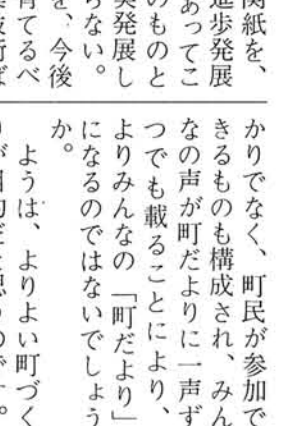 関紙を、
進歩発展
あってこ
のものと
発展し
らない。
を、今後
育てるべ
かりでなく、町民が参加で
きるものも構成され、みん
なの声が町だよりに一声ず
つでも載ることにより、
よりみんなの「町だより」
になるのではないでしょう
か。
ようは、よりよい町づく
りが目的だと思うのです。